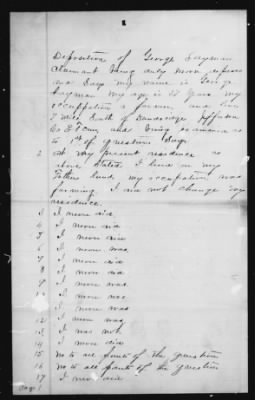 Deposition of George Layman
Claimant being duly sworn deposes
and Says my name is George
Layman my age is 55 years my
occupation a farmer and live
7 miles South of Dandridge Jefferson
Co E Tenn and being examined as
to 1st of question Says
2 At my present residence as
above Stated I lived on my
Fathers lands my occupation was
farming I did not change my
residence.
3 I never did
4 I never did
5 I never did
6 I never was
7 I never did
8 I never did
9 I never was
10 I never was
11 I never was
12 I never was
13 I was not
14 I never did
15 No to all parts of the question
16 No to all parts of the question
17 I never did
Page 1